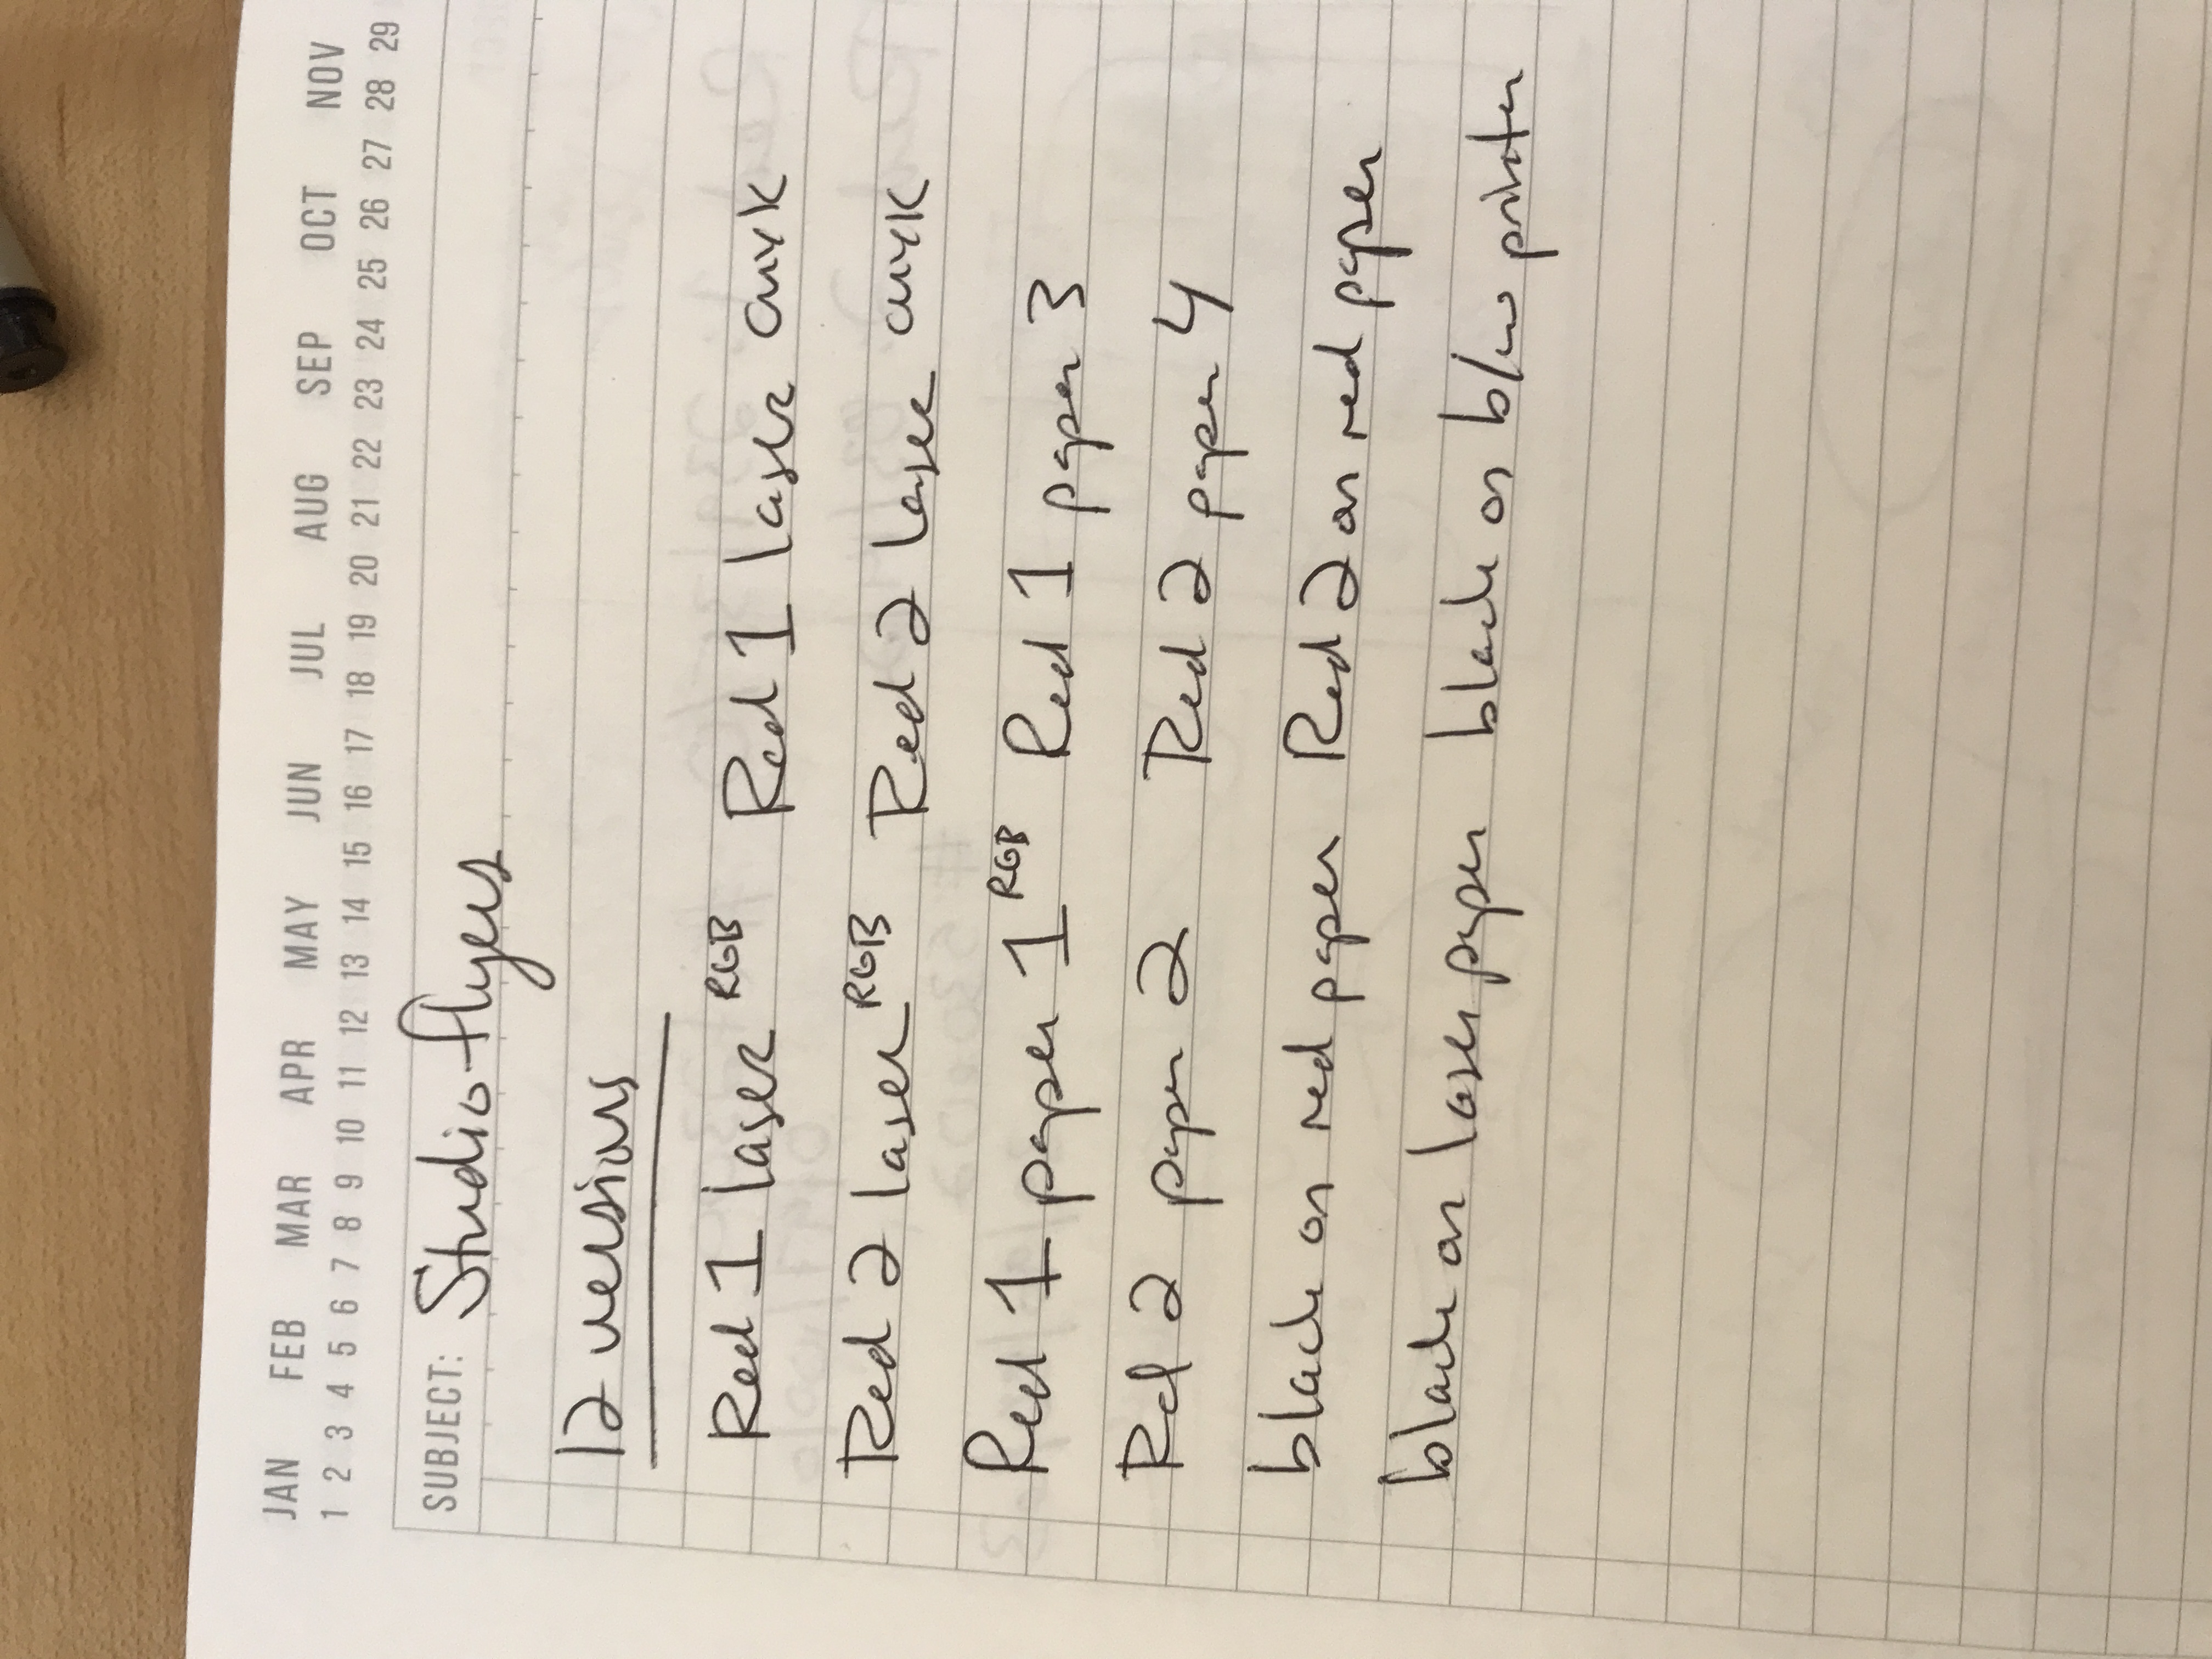 JAN FEB MAR APR MAY JUN JUL AUG SEP OCT NOV
1 2 3 4 5 6 7 8 9 10 11 12 13 14 15 16 17 18 19 20 21 22 23 24 25 26 27 28 29
SUBJECT: Studio flyers
12 versions
Red 1 laser RGB Red 1 laser CMYK
Red 2 laser RGB Red 2 laser CMYK
Red 1 paper 1 RGB Red 1 paper 3
Red 2 paper 2 Red 2 paper 4
black on red paper Red 2 on red paper
black on laser paper black on b/w printer